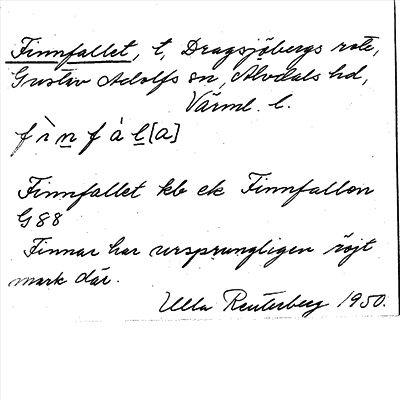 Finnfallet, t, Dragsjöbergs rote,
Gustav Adolfs sn, Älvdals hd,
Värml. l.
fìnfál[a]
Finnfallet kb ek Finnfallen
G88
Finnar har ursprungligen röjt
mark där.
Ulla Reuterberg 1950.